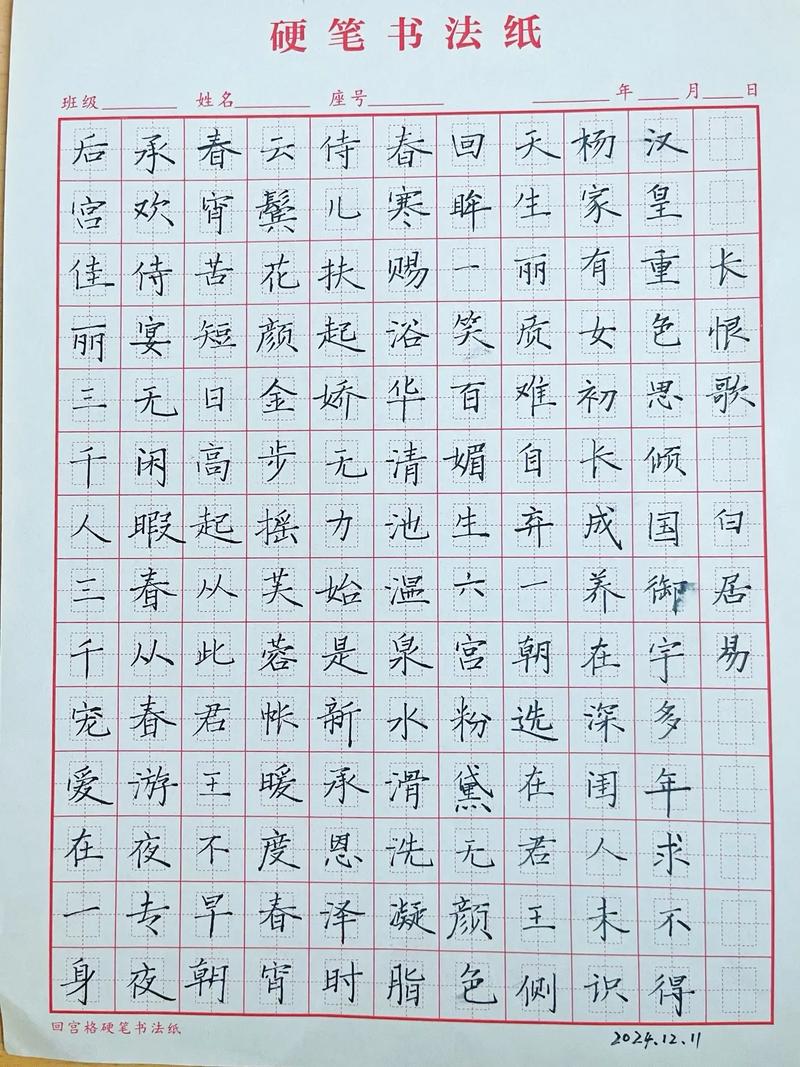 硬笔书法纸
班级 姓名 座号 年 月 日
长恨歌 白居易
汉皇重色思倾国御宇多年求不得
杨家有女初长成养在深闺人未识
天生丽质难自弃一朝选在君王侧
回眸一笑百媚生六宫粉黛无颜色
春寒赐浴华清池温泉水滑洗凝脂
侍儿扶起娇无力始是新承恩泽时
云鬓花颜金步摇芙蓉帐暖度春宵
春宵苦短日高起从此君王不早朝
承欢侍宴无闲暇春从春游夜专夜
后宫佳丽三千人三千宠爱在一身
回宫格硬笔书法纸
2024.12.11